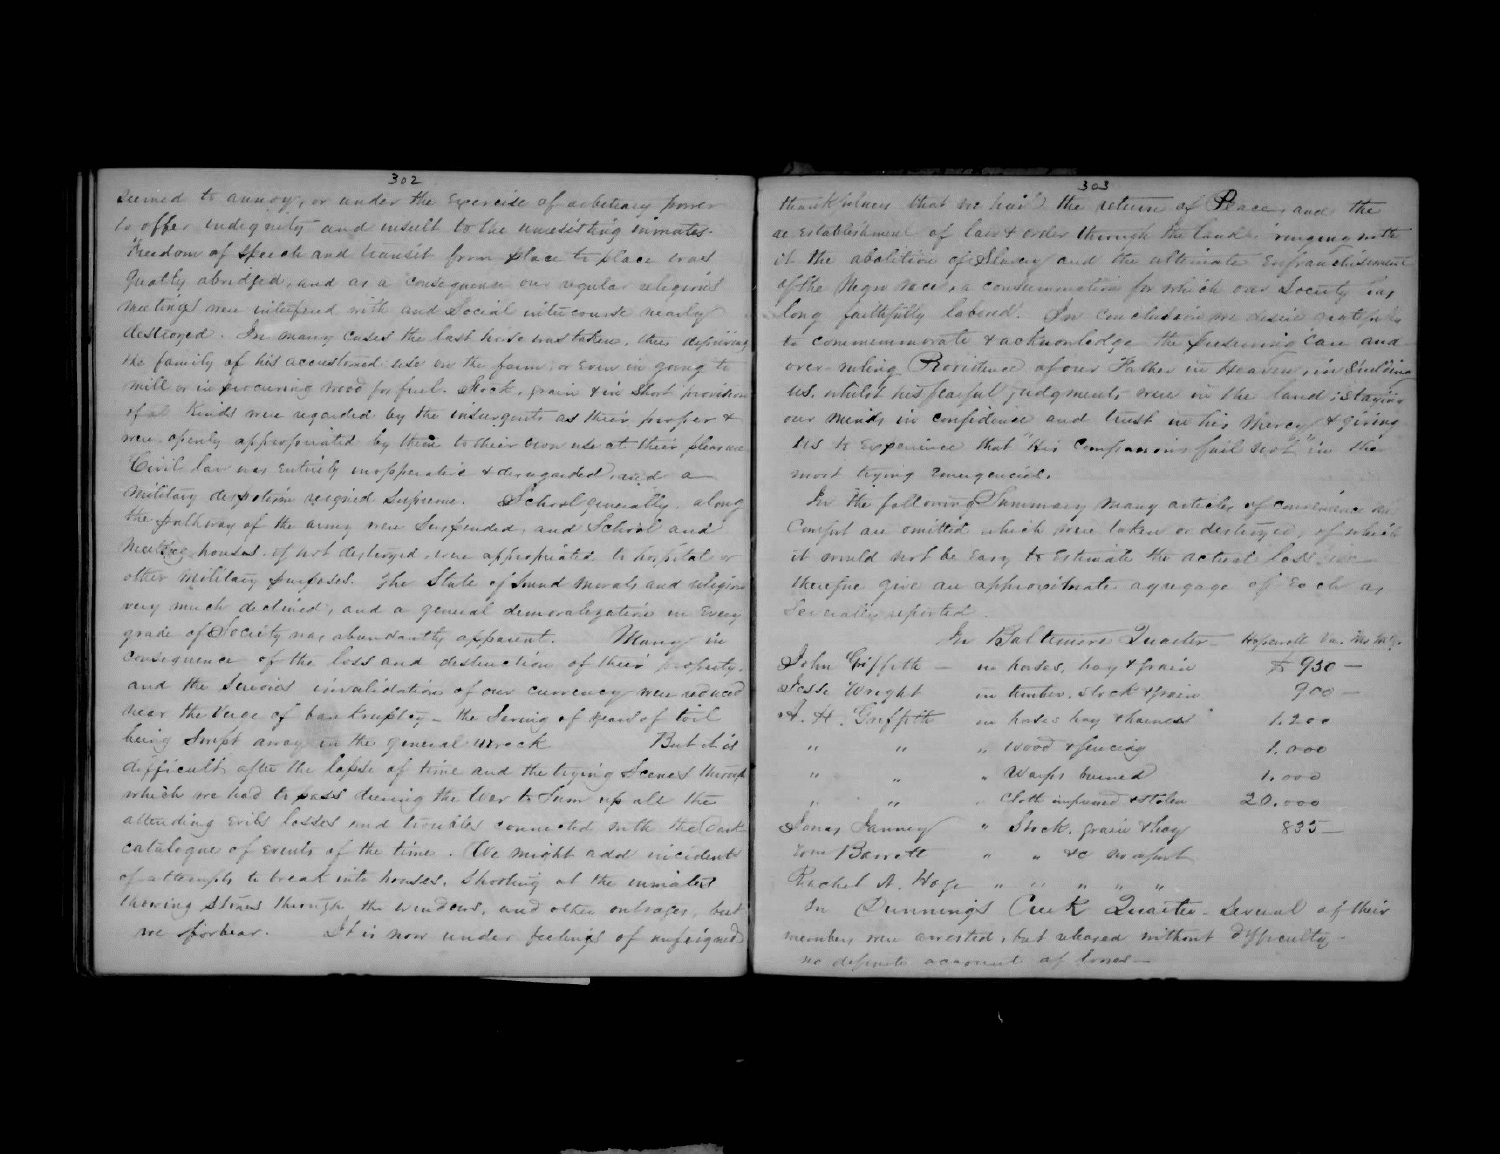 302
seemed to annoy, or under the exercise of arbitrary power
to offer indignity and insult to the unresisting inmates.
Freedom of speech and transit from place to place was
greatly abridged, and as a consequence our regular religious
meetings were interfered with and Social intercourse nearly
destroyed. In many cases the last horse was taken, thus depriving
the family of his accustomed use on the farm, or even in going to
mill or in procuring wood for fuel. Stock, grain & in short provisions
of all kinds were regarded by the insurgents as their proper &
were openly appropriated by them to their own use at their pleasure
Civil law was entirely inoperative & disregarded and a
military despotism reigned supreme. School generally, along
the pathway of the army were suspended, and School and
Meeting houses, if not destroyed, were appropriated to hospital or
other military purposes. The State of Sound morals and religion
very much declined, and a general demoralization in every
grade of Society was abundantly apparent. Many in
consequence of the loss and destruction of their property,
and the Serious invalidations of our currency were reduced
near the verge of bankruptcy — the Saving of years of toil
being swept away in the general wreck. But it is
difficult, after the lapse of time and the trying Scenes through
which we had to pass during the War to Sum up all the
attending evils losses and troubles connected with the Dark
catalogue of events of the time. We might add incidents
of attempts to break into houses, shooting at the inmates
throwing stones through the windows, and other outrages, but
we forbear. It is now under feelings of unfeigned
303
thankfulness that we hail the return of Peace, and the
re establishment of law & order through the land, bringing with
it the abolition of Slavery and the ultimate enfranchisement
of the Negro race, a consummation for which our Society has
long faithfully labored. In conclusion we desire gratefully
to commemorate & acknowledge the preserving care and
over-ruling Providence of our Father in Heaven, in Shielding
us, whilst his fearful judgments were in the land; staying
our minds in confidence and trust in his Mercy & giving
us to experience that "His Compassions fail not" in the
most trying emergencies.
In the following Summary many articles of convenience and
Comfort are omitted which were taken or destroyed, of which
it would not be easy to estimate the actual loss, we
therefore give an approximate aggregate of each as
severally reported.
In Baltimore Quarter — Hopewell Va. Mo. Mtg.
John Griffith — in horses, hay & grain $ 930 —
Jesse Wright in timber, stock & grain 900 —
A. H. Griffith in horses hay & harness 1.200
" " " wood & fencing 1.000
" " " Warps burned 1.000
" " " Cloth impressed & stolen 20.000
Jonas Janney " Stock, grain & hay 835 —
Wm Barrett " " &c no report
Rachel A. Hoge " " " " "
In Dunnings Creek Quarter — Several of their
members were arrested, but released without difficulty —
no definite account of losses —